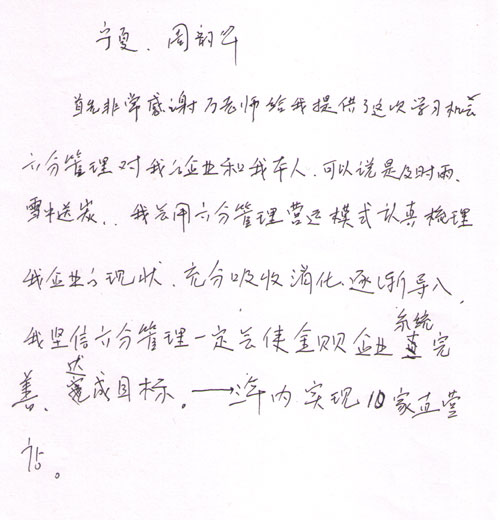 宁夏．周韵华
首先非常感谢万老师给我提供了这次学习机会
六分管理对我们企业和我本人．可以说是及时雨、
雪中送炭．．我会用六分管理营运模式认真梳理
我企业的现状．充分吸收消化．逐渐导入，
我坚信六分管理一定会使金贝企业系统完
善、达成目标。→年内实现10家直营
店。